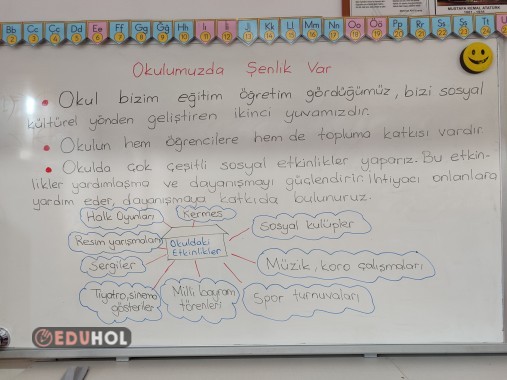 Bb Cc Çç Dd Ee Ff Gg Ğğ Hh Iı İi Jj Kk Ll Mm Nn Oo Öö Pp Rr Ss Şş Tt U
2 3 4 5 6 7 8 9 10 11 12 13 14 15 16 17 18 19 20 21 22 23 24
MUSTAFA KEMAL ATATÜRK
Okulumuzda Şenlik Var
• Okul bizim eğitim öğretim gördüğümüz, bizi sosyal
kültürel yönden geliştiren ikinci yuvamızdır.
• Okulun hem öğrencilere hem de topluma katkısı vardır.
• Okulda çok çeşitli sosyal etkinlikler yaparız. Bu etkin-
likler yardımlaşma ve dayanışmayı güçlendirir. İhtiyacı olanlara
yardım eder, dayanışmaya katkıda bulunuruz.
Halk Oyunları
Kermes
Sosyal kulüpler
Resim yarışmaları
Okuldaki
Etkinlikler
Sergiler
Müzik, koro çalışmaları
Tiyatro, sinema
gösteriler
Milli bayram
törenleri
Spor turnuvaları
EDUHOL